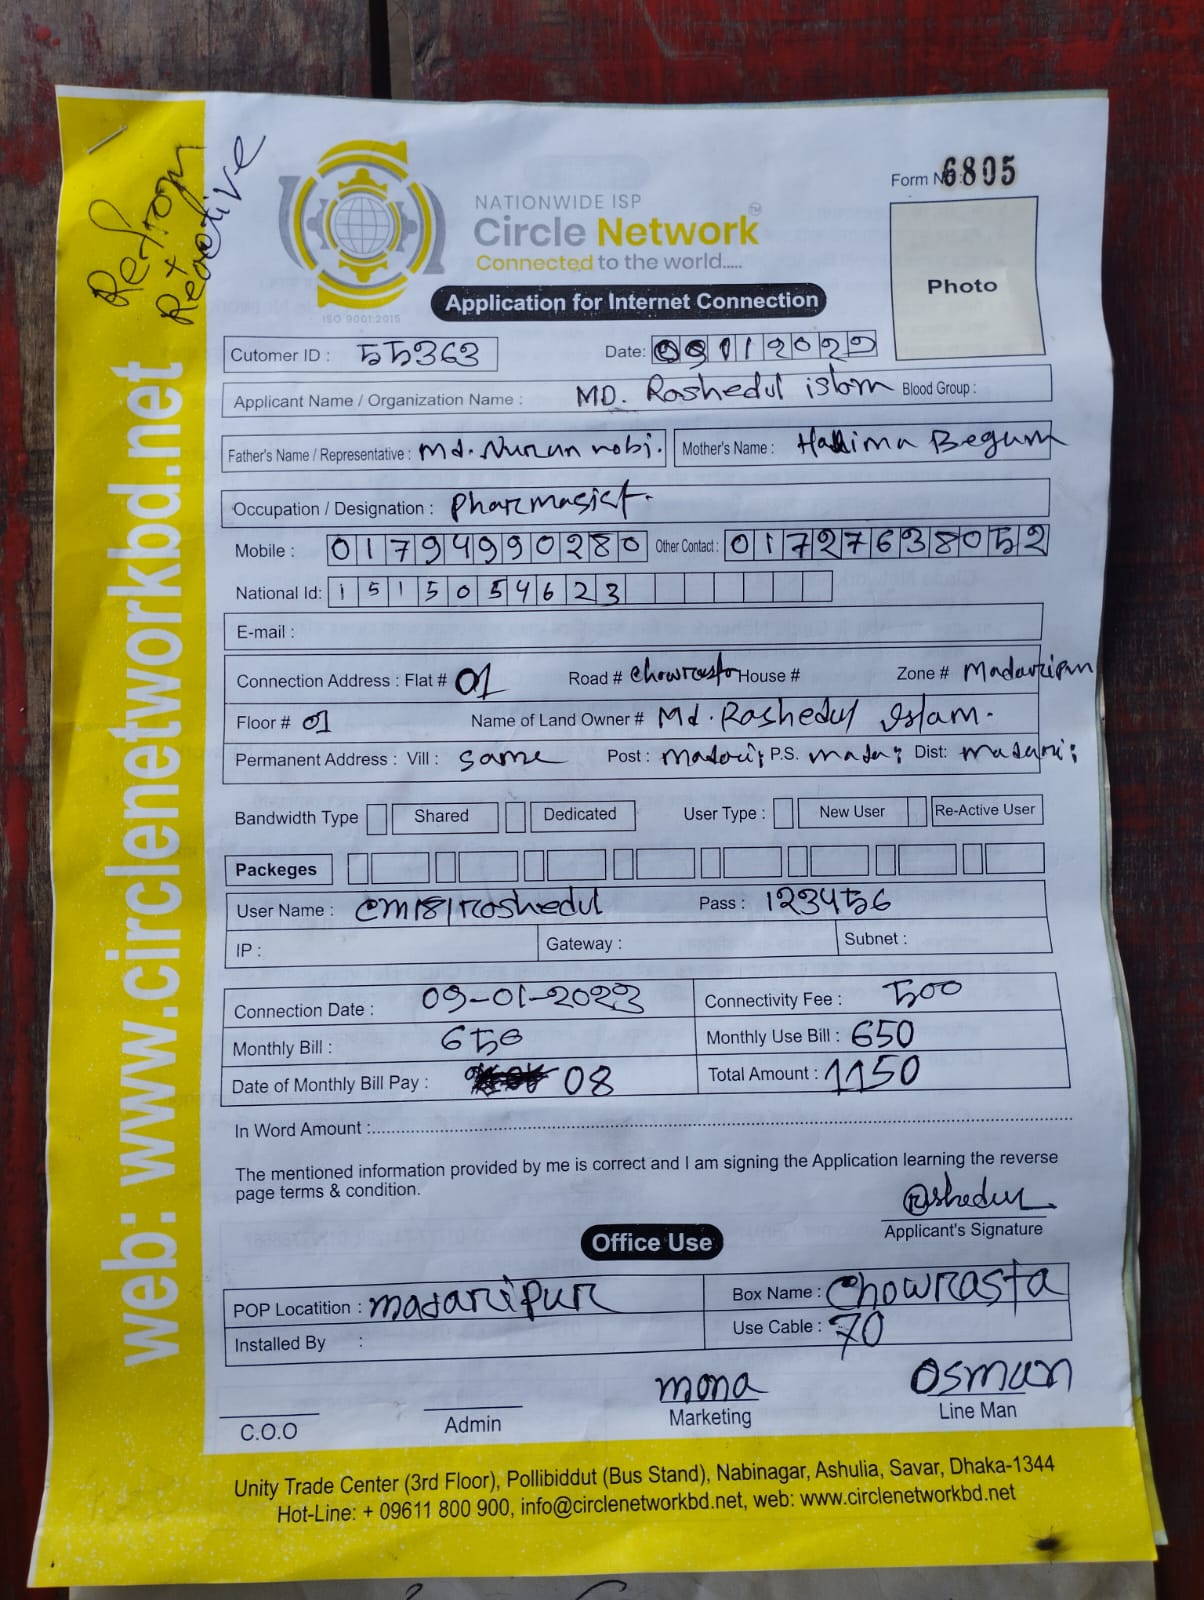 Reactive
NATIONWIDE ISP
Circle Network
Connected to the world.....
ISO 9001:2015
Form No: 6805
Photo
Application for Internet Connection
Cutomer ID : 55363 Date: 09012022
Applicant Name / Organization Name : MD. Rashedul islam Blood Group :
Father's Name / Representative : Md. Nurun nobi. Mother's Name : Halima Begum
Occupation / Designation : Pharmasist.
Mobile : 01794990280 Other Contact : 01727638052
National Id: 1515054623
E-mail :
Connection Address : Flat # 01 Road # chowrasta House # Zone # Madaripur
Floor # 01 Name of Land Owner # Md. Rashedul Islam.
Permanent Address : Vill : same Post : P.S. Dist:
Bandwidth Type Shared Dedicated User Type : New User Re-Active User
Packeges
User Name : Pass : 123456
IP : Gateway : Subnet :
Connection Date : 09-01-2023 Connectivity Fee : 500
Monthly Bill : 650 Monthly Use Bill : 650
Date of Monthly Bill Pay : 08 Total Amount : 1150
In Word Amount :
The mentioned information provided by me is correct and I am signing the Application learning the reverse
page terms & condition.
Rashedul
Applicant's Signature
Office Use
POP Locatition : madaripur Box Name : Chowrasta
Installed By : Use Cable : 70
mona Osman
C.O.O Admin Marketing Line Man
Unity Trade Center (3rd Floor), Pollibiddut (Bus Stand), Nabinagar, Ashulia, Savar, Dhaka-1344
Hot-Line: + 09611 800 900, info@circlenetworkbd.net, web: www.circlenetworkbd.net
web: www.circlenetworkbd.net